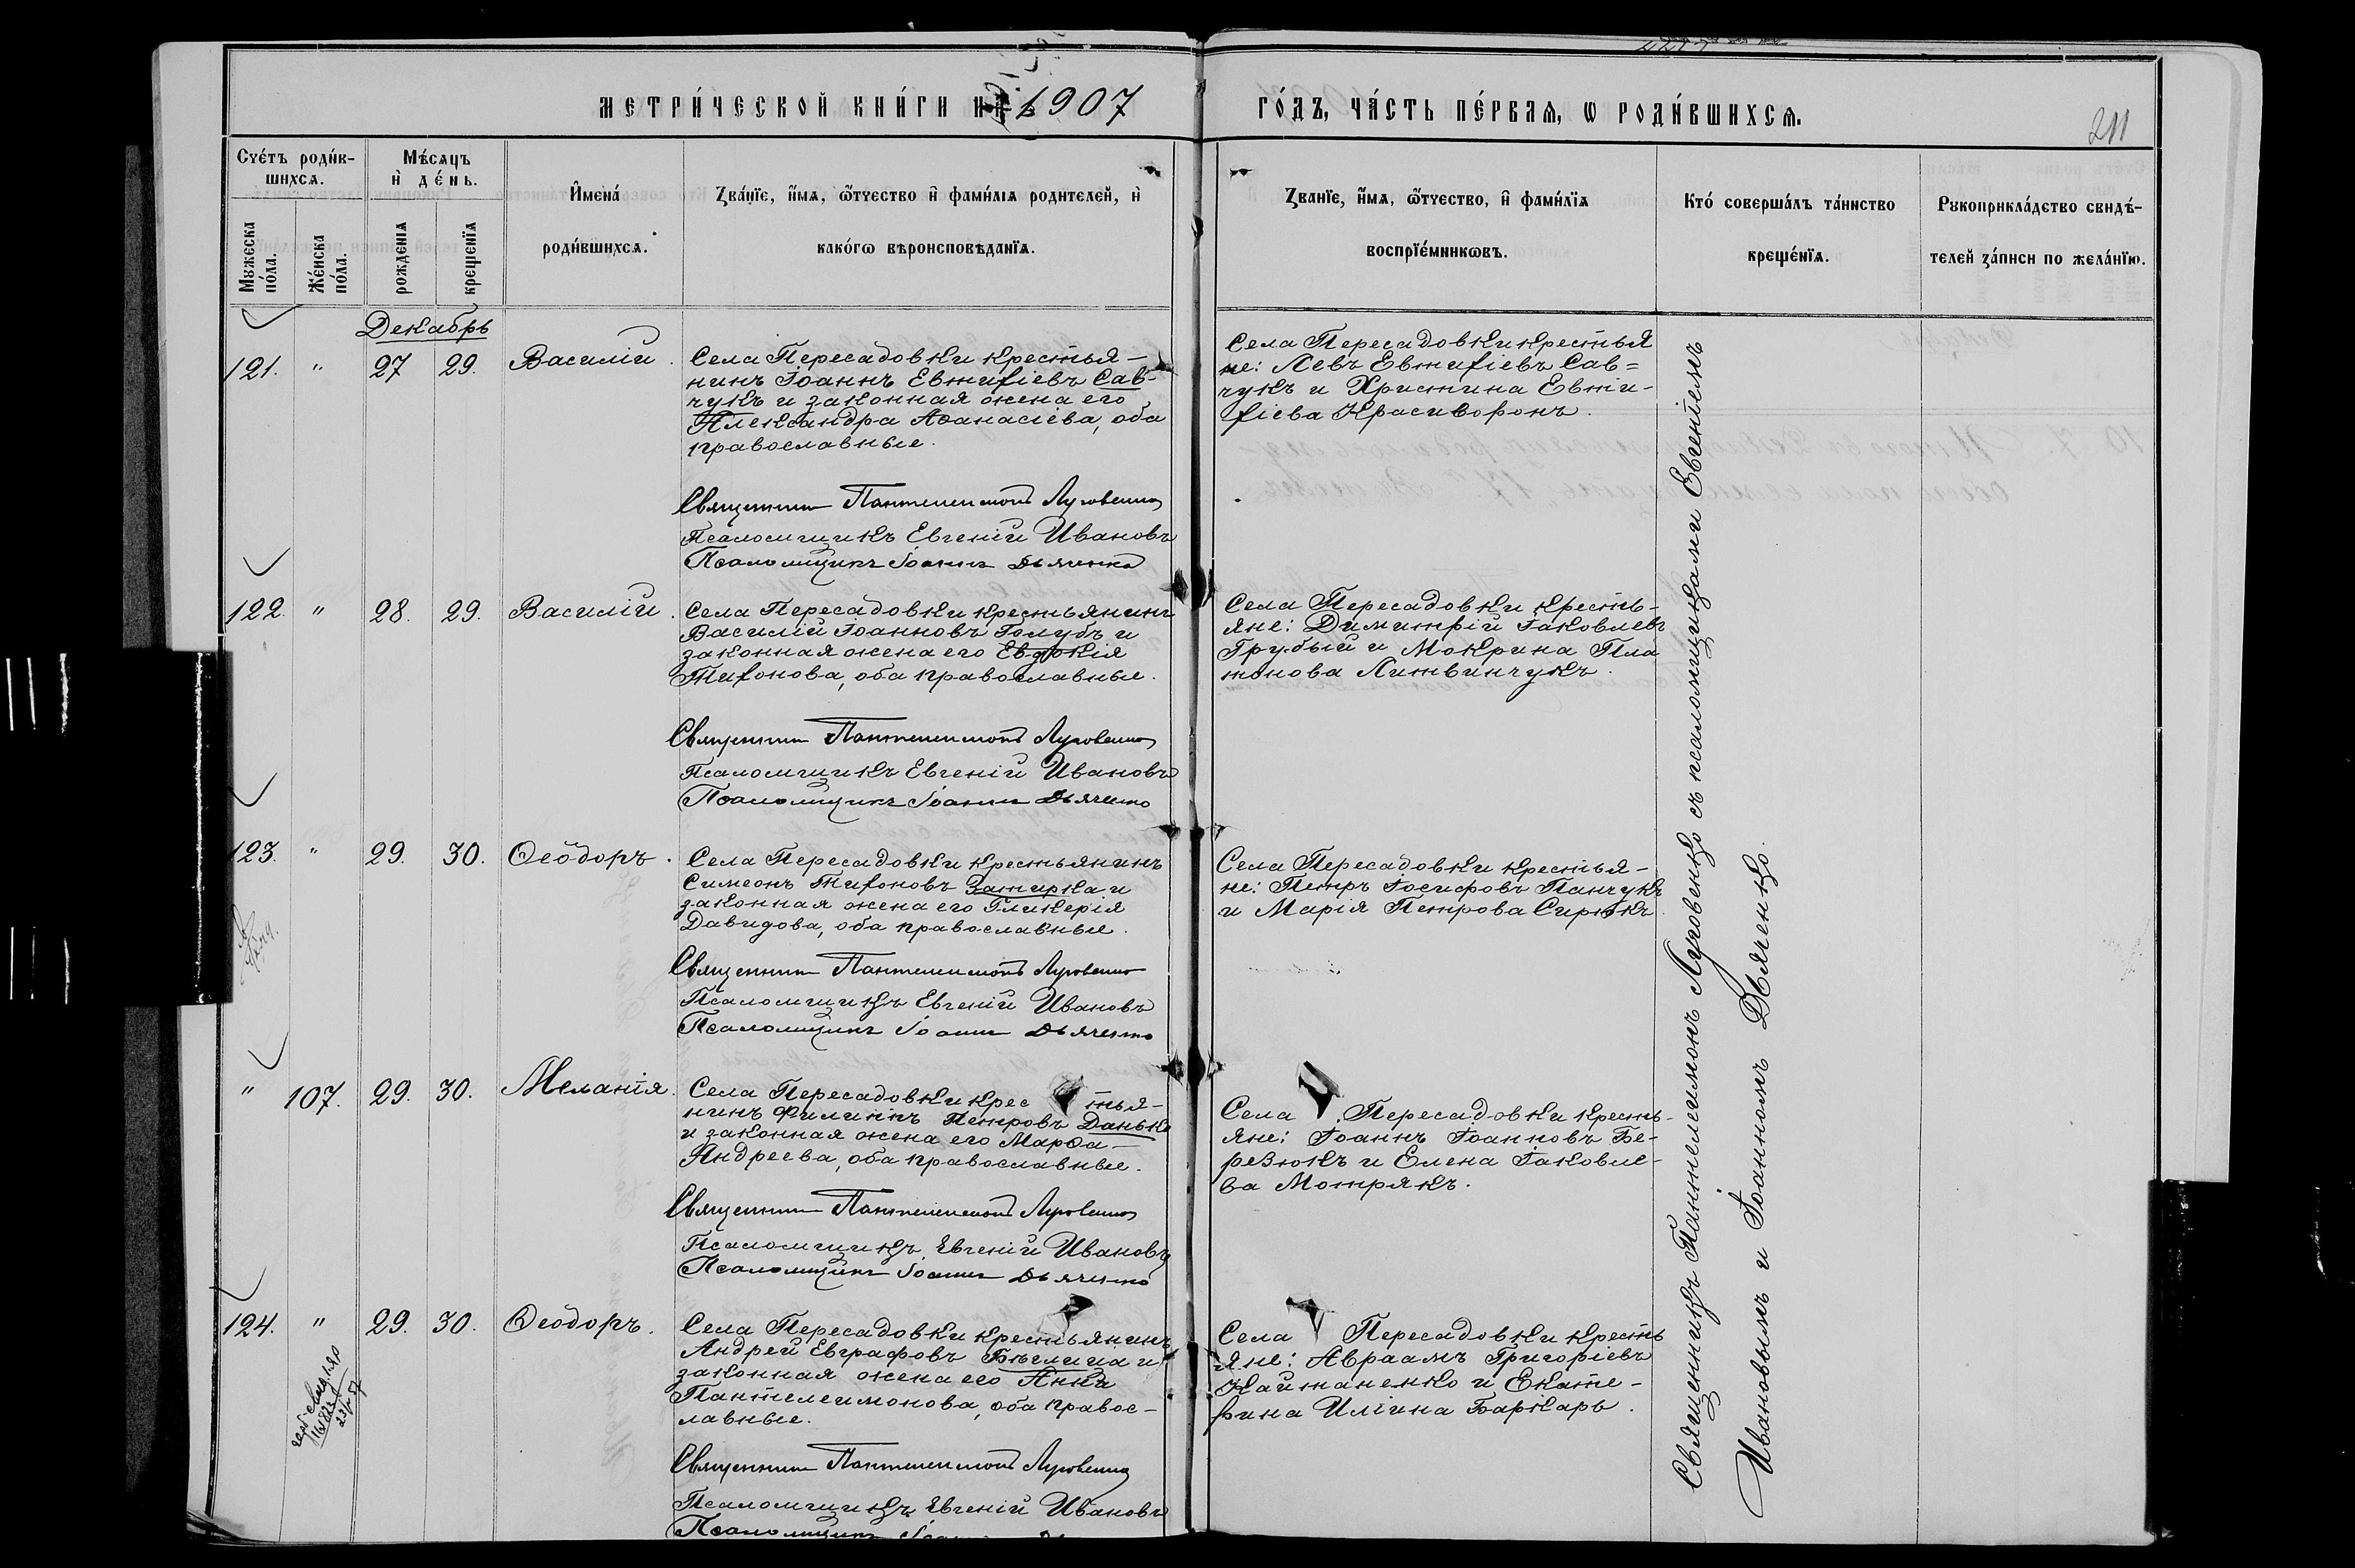 МЕТРИ́ЧЕСКОЙ КНИ́ГИ НА 1907
ГО́ДЪ, ЧА́СТЬ ПЕ́РВАѦ, Ѡ РОДИ́ВШИХСѦ.
211
Сче́тъ роди́в-
шихсѧ.
Мужеска
по́ла.
Же́нска
по́ла.
Мѣ́сѧцъ
и҆ де́нь.
рожденїѧ
крещенїѧ
И҆мена́
роди́вшихсѧ.
Зва́нїе, и҆́мѧ, ѻ҆́тчество и҆ фами́лїѧ родителей, и҆
како́гѡ вѣроисповѣданїѧ.
Званїе, и҆́мѧ, ѻ҆́тчество, и҆ фами́лїѧ
воспрїе́мникѡвъ.
Кто́ соверша́лъ та́инство
креще́нїѧ.
Рукоприкла́дство свидѣ́-
телей за́писи по жела́нїю.
Декабрь
121. " 27 29. Василій.
Села Пересадовки крестья-
нинъ Іоаннъ Евтихіевъ Сав-
чукъ и законная жена его
Александра Аѳанасіева, оба
православные.
Священникъ Пантелеимонъ Луговенко
Псаломщикъ Евгеній Ивановъ
Псаломщикъ Іоаннъ Дьяченко
Села Пересадовки крестья
не: Левъ Евтихіевъ Сав=
чукъ и Христина Евти-
хіева Красиворонъ.
122. " 28. 29. Василій.
Села Пересадовки крестьянинъ
Василій Іоанновъ Голубъ и
законная жена его Евдокія
Трифонова, оба православные.
Священникъ Пантелеимонъ Луговенко
Псаломщикъ Евгеній Ивановъ
Псаломщикъ Іоаннъ Дьяченко
Села Пересадовки кресть-
яне: Димитрій Іаковлевъ
Грубый и Мокрина Пла
тонова Литвинчукъ.
123. " 29. 30. Ѳеодоръ.
Села Пересадовки крестьянинъ
Симеонъ Трифоновъ Затирка и
законная жена его Гликерія
Давидова, оба православные.
Священникъ Пантелеимонъ Луговенко
Псаломщикъ Евгеній Ивановъ
Псаломщикъ Іоаннъ Дьяченко
Села Пересадовки крестья-
не: Петръ Іосифовъ Панчукъ
и Марія Петрова Сирюкъ.
" 107. 29. 30. Меланія.
Села Пересадовки крестья-
нинъ Филиппъ ПетровъДанько
и законная жена его Марѳа
Андреева, оба православные.
Священникъ Пантелеимонъ Луговенко
Псаломщикъ Евгеній Ивановъ
Псаломщикъ Іоаннъ Дьяченко
Села Пересадовки кресть-
яне: Іоаннъ Іоанновъ Бе-
резюкъ и Елена Іаковле-
ва Мотрякъ.
124. " 29. 30. Ѳеодоръ.
Села Пересадовки крестьянинъ
Андрей Евграфовъ Бѣглица и
законная жена его Анна
Пантелеимонова, оба правос-
лавные.
Священникъ Пантелеимонъ Луговенко
Псаломщикъ Евгеній Ивановъ
Псаломщикъ
Села Пересадовки кресть
яне: Авраамъ Григоріевъ
Кайтаненко и Екате-
рина Иліина Баркарь.
Священникъ Пантелеимонъ Луговенко съ псаломщиками Евгеніемъ
Ивановымъ и Іоанномъ Дьяченко.